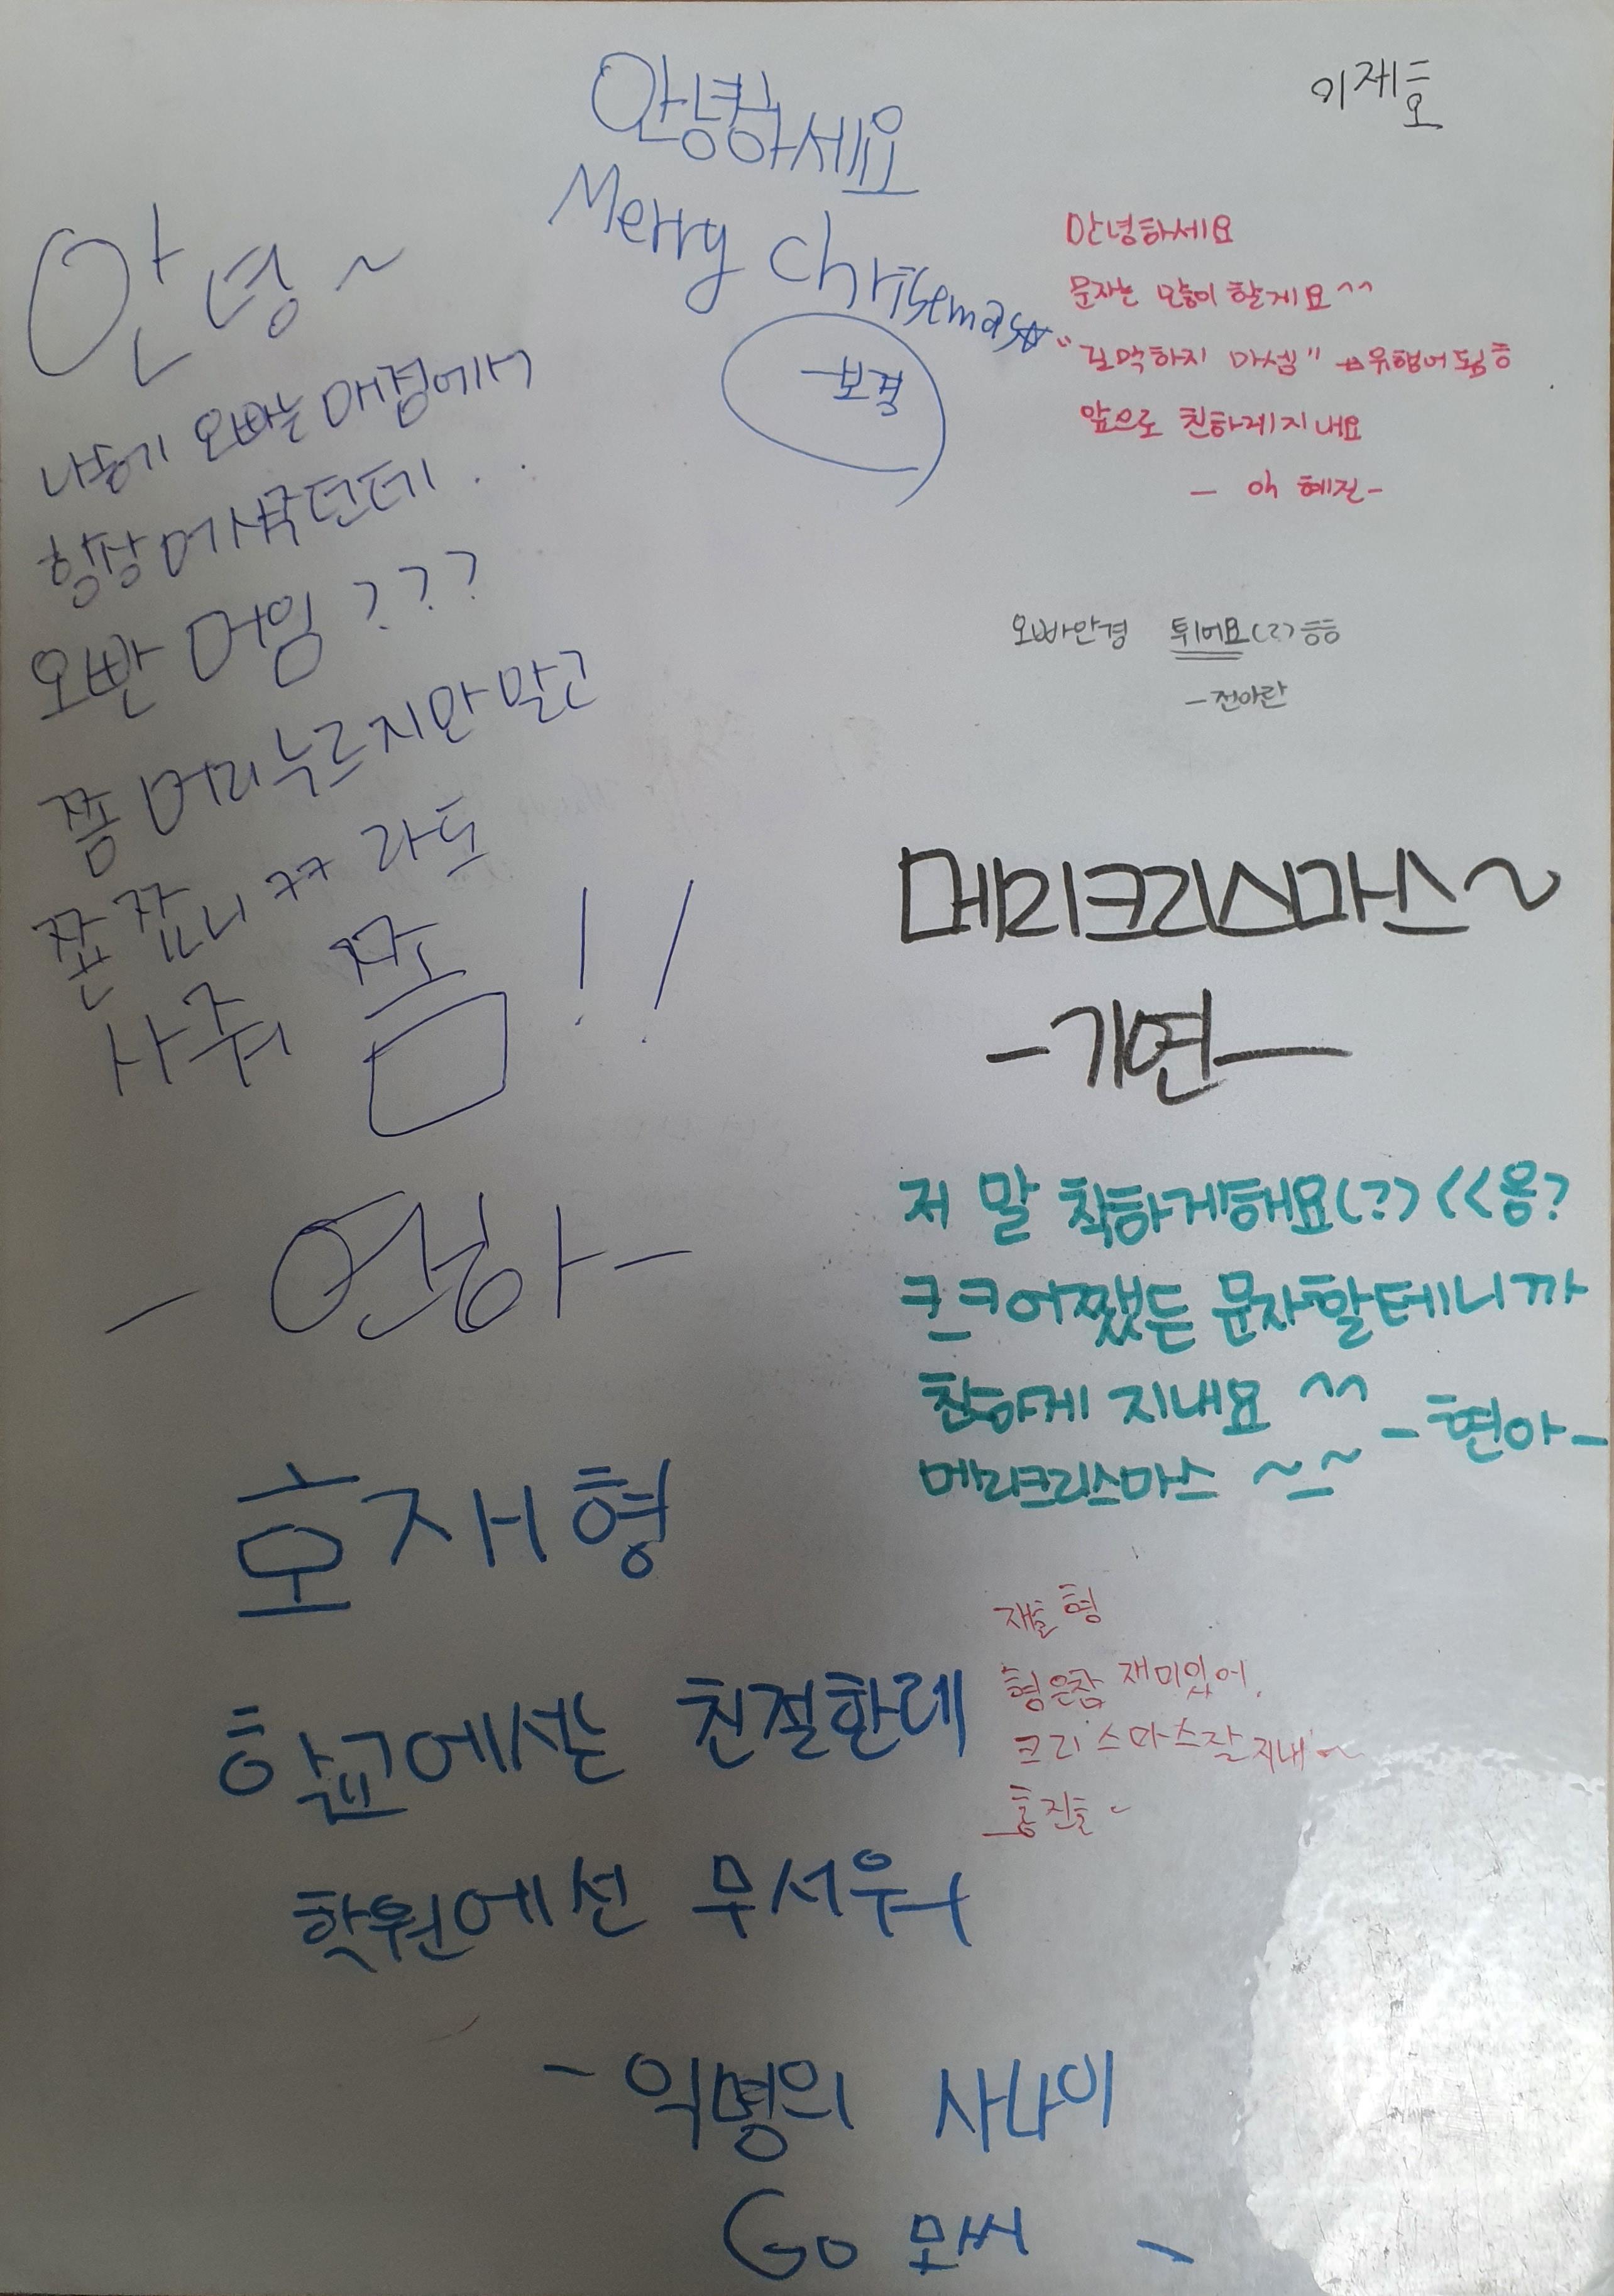 이제호
안녕하세요
Merry Chrisemas☆
-보결
안녕하세요
문자는 많이 할게요^^
"긴막하지 마셈" 유행어됨ㅎ
앞으로 친하게지내요
- 혜진-
오빠안경 튀어요(?)ㅎㅎ
-전아란
안녕~
오빠는 매점에서
항상 머사묵던데..
오빤 머임???
쫌 머리누르지만말고
쫀쫀니 ㅋㅋ 라도
사줘 쫌!!
-연하-
메리크리스마스~
-기연-
저 말 착하게해요(?) <<응?
ㅋㅋ어쨌든 문자할테니까
친하게 지내요 ^^
-현아-
메리크리스마스 ~_~
호재형
학교에서는 친절한데
학원에선 무서워
-익명의 사나이
Go 모씨 -
재호형
형은참 재미있어.
크리스마스잘지내~
홍진호~